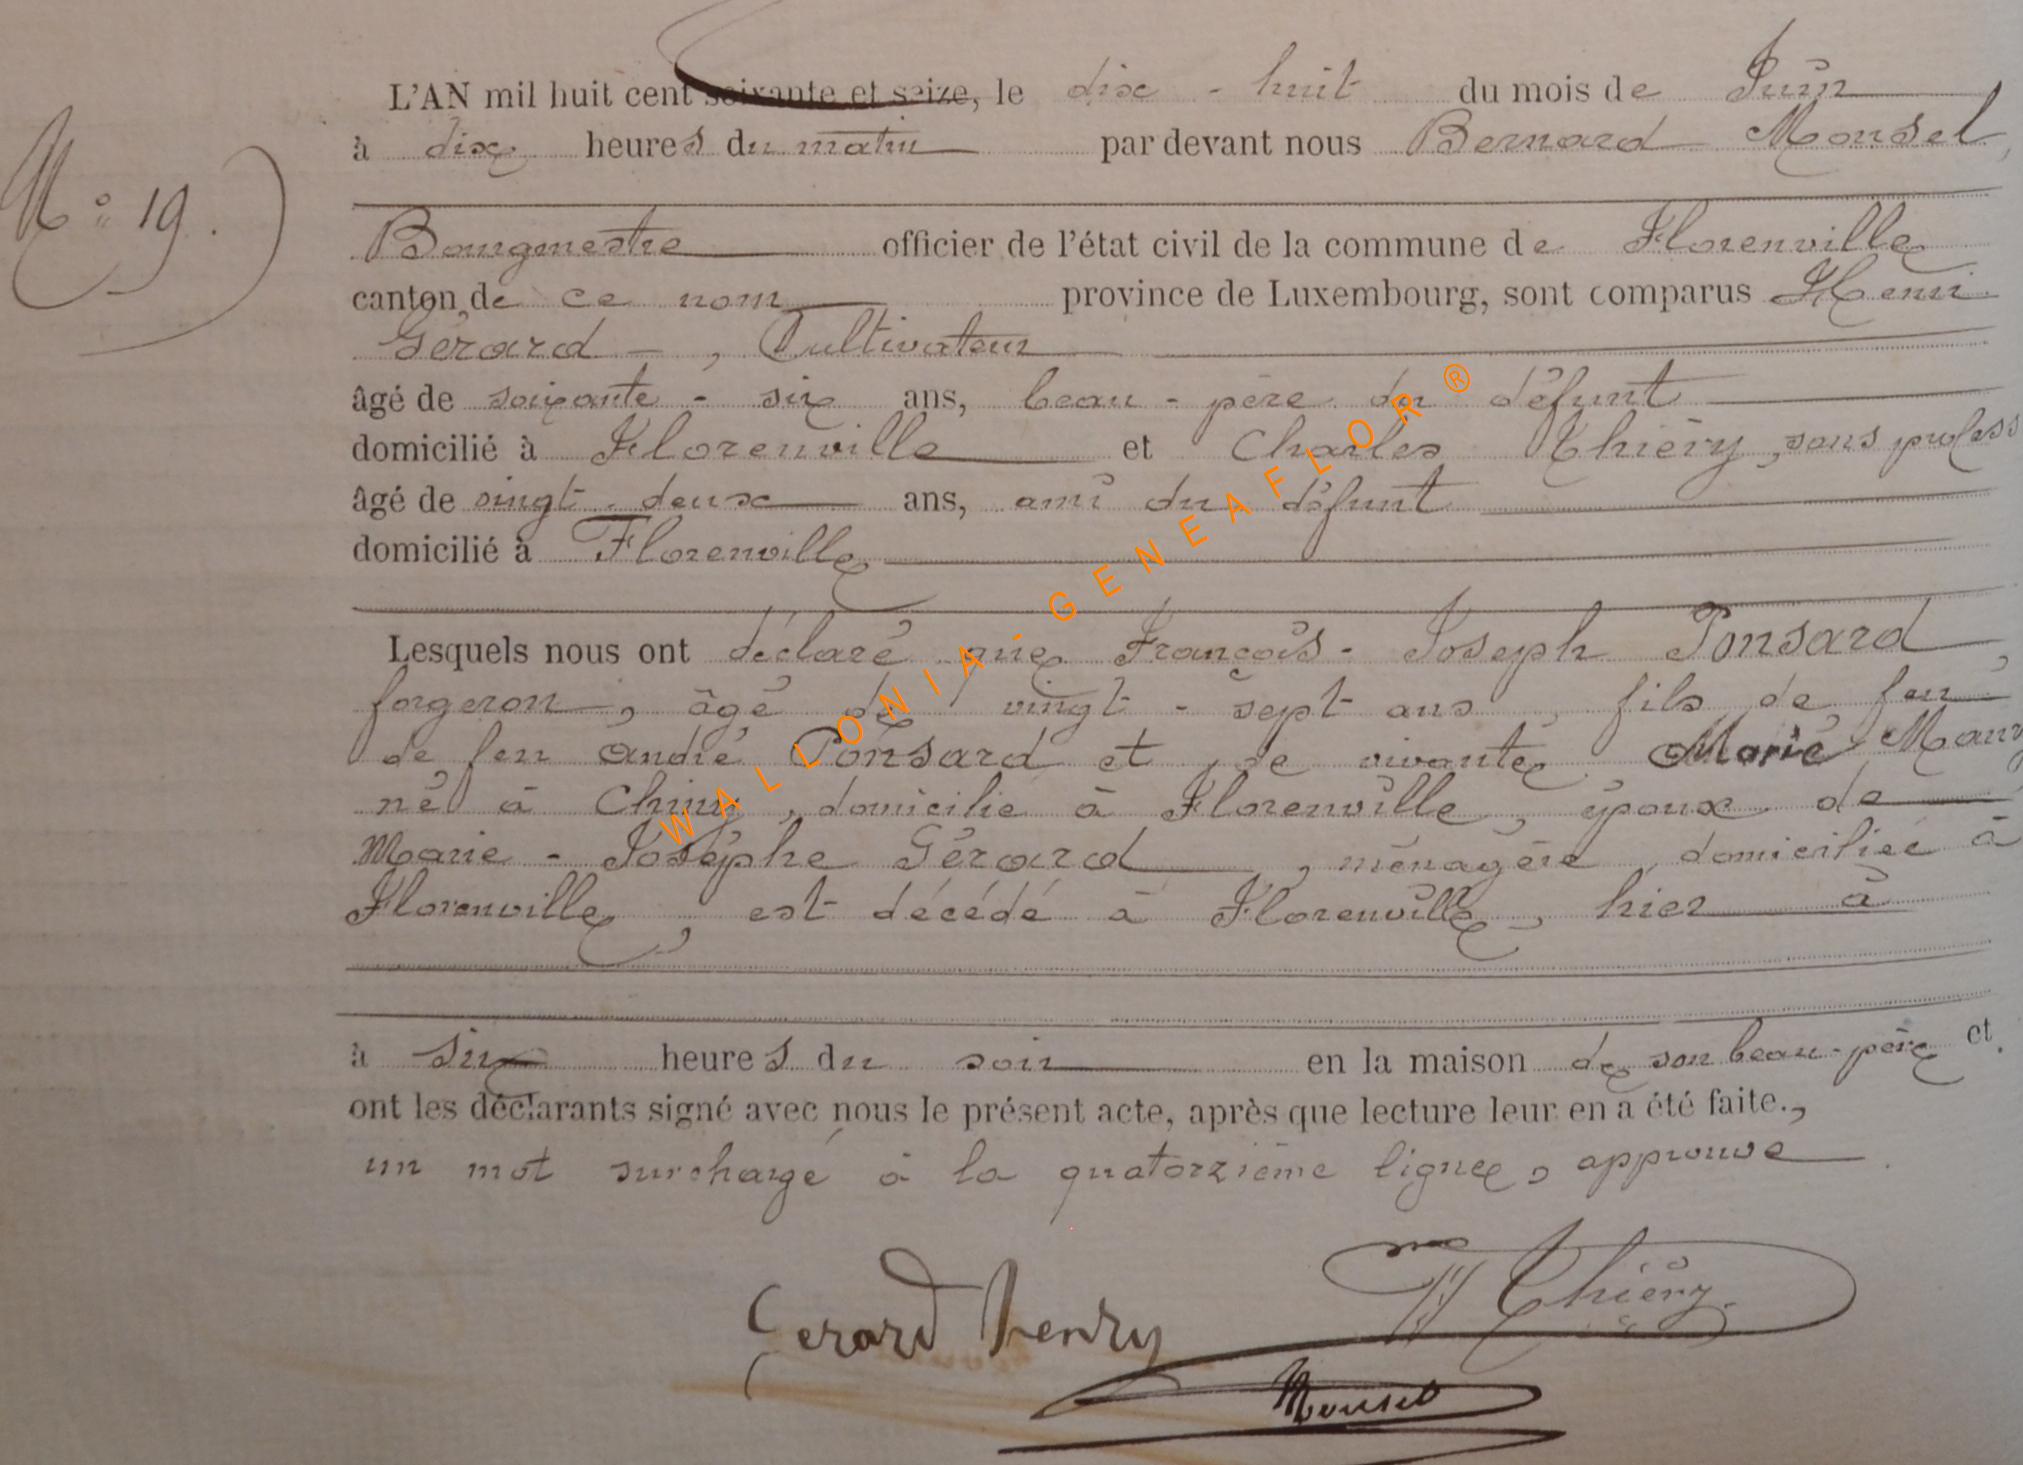 L'AN mil huit cent soixante et seize, le dix - huit du mois de Juin
à dix heures du matin par devant nous Bernard Monsel,
N° 19.
Bourgmestre officier de l'état civil de la commune de Florenville
canton de ce nom province de Luxembourg, sont comparus Henri
Gérard, Cultivateur
âgé de soixante - six ans, beau - père du défunt
domicilié à Florenville et Charles Thiéry, sans profess
âgé de vingt - deux ans, ami du défunt
domicilié à Florenville
Lesquels nous ont déclaré que François - Joseph Ponsard,
forgeron, âgé de vingt - sept ans, fils de feu
de feu André Ponsard et de vivante Marie
né à Chiny, domicilié à Florenville, époux de
Marie - Josèphe Gérard, ménagère, domiciliée à
Florenville, est décédé à Florenville, hier à
à six heures du soir en la maison de son beau-père et
ont les déclarants signé avec nous le présent acte, après que lecture leur en a été faite.,
un mot surchargé à la quatorzième ligne, approuvé
Gerard henry Thiéry
Monsel
WALLONIA-GENEAFLOR®